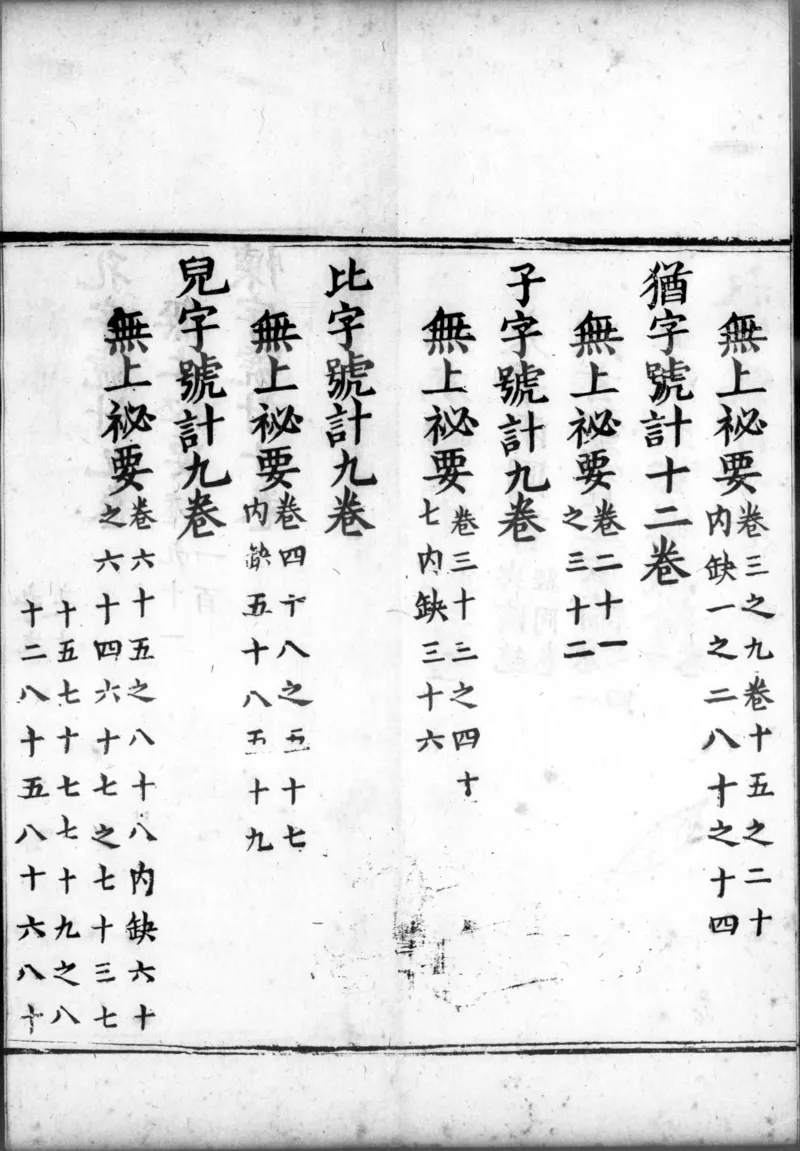 無上祕要卷三之九卷十五之二十
内缺一之二八十之十四
猶字號計十二卷
無上祕要卷二十一
之三十二
子字號計九卷
無上祕要卷三十三之四十
七内缺三十六
比字號計九卷
無上祕要卷四十八之五十七
内缺五十八五十九
兒字號計九卷
無上祕要卷六十五之八十八内缺六十
之六十四六十七之七十三七
十五七十七七十九之八
十二八十五八十六八十